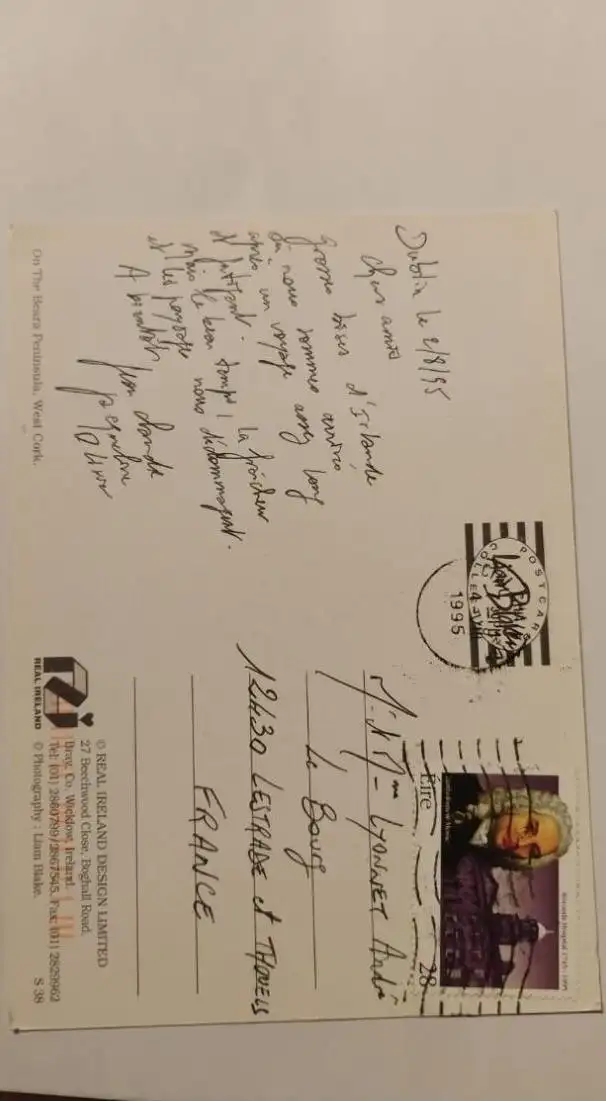 Dublin le 2/8/95
Chers amis
Grosses bises d'Irlande
où nous sommes arrivés
après un voyage assez long
et fatigant.
Mais le beau temps, la fraîcheur
et les paysages nous dédommagent.
A bientôt
Jean Claude
Jacqueline
Olivier
On The Beara Peninsula, West Cork.
POSTCARD
COLLE
1995
Éire
28
M. et Mme LYONNET André
Le Bourg
12430 LESTRADE et THOUELS
FRANCE
REAL IRELAND
© REAL IRELAND DESIGN LIMITED
27 Beechwood Close, Boghall Road,
Bray, Co. Wicklow, Ireland.
Tel: (01) 2860799/2867545. Fax: (01) 2829962
© Photography : Liam Blake.
S 38